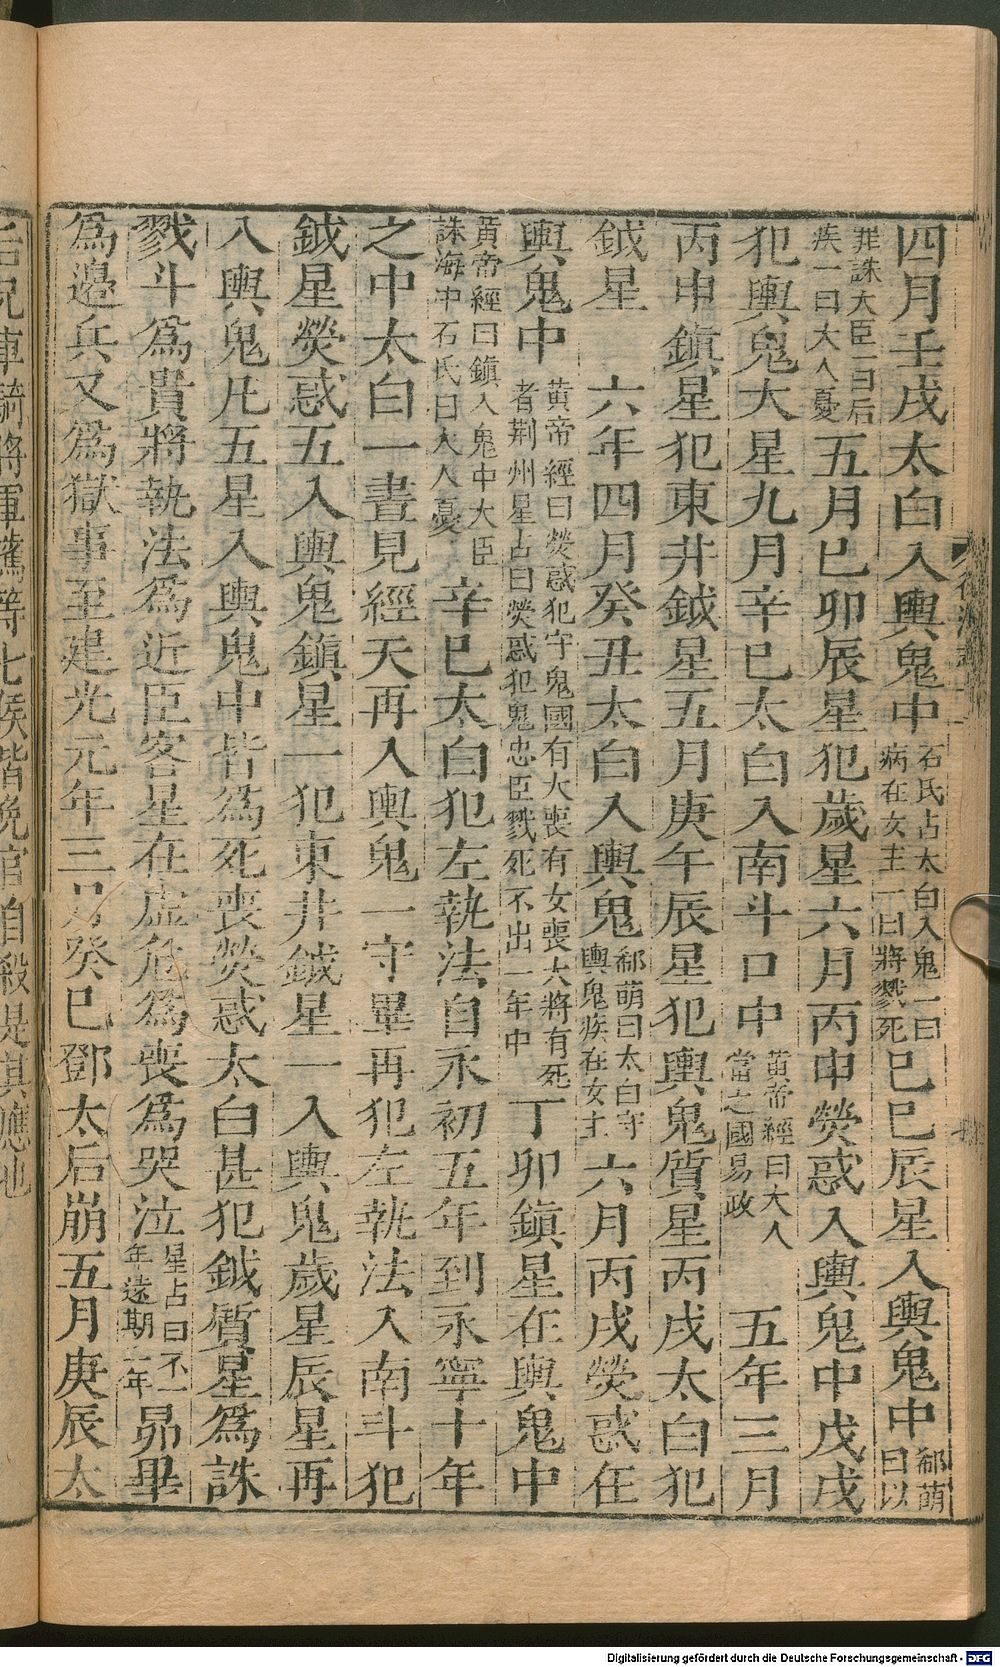 四月壬戌太白入輿鬼中石氏占太白入鬼一曰病在女主一曰將戮死己巳辰星入輿鬼中郗萌曰以
罪誅大臣一曰后疾一曰大人憂五月己卯辰星犯歲星六月丙申熒惑入輿鬼中戊戌
犯輿鬼大星九月辛巳太白入南斗口中黃帝經曰大人當之國易政五年三月
丙申鎮星犯東井鉞星五月庚午辰星犯輿鬼質星丙戌太白犯
鉞星六年四月癸丑太白入輿鬼郗萌曰太白守輿鬼疾在女主六月丙戌熒惑在
輿鬼中黃帝經曰熒惑犯守鬼國有大喪有女喪大將有死者荆州星占曰熒惑犯鬼忠臣戮死不出一年中丁卯鎮星在輿鬼中
黃帝經曰鎮入鬼中大臣誅海中石氏曰大人憂辛巳太白犯左執法自永初五年到永寧十年
之中太白一晝見經天再入輿鬼一守畢再犯左執法入南斗犯
鉞星熒惑五入輿鬼鎮星一犯東井鉞星一入輿鬼歲星辰星再
入輿鬼凡五星入輿鬼中皆爲死喪熒惑太白甚犯鉞質星爲誅
戮斗爲貴將執法爲近臣客星在虛危爲喪爲哭泣星占曰不一年遠期二年昴畢
爲邊兵又爲獄事至建光元年三月癸巳鄧太后崩五月庚辰太
后兄車騎將軍騭等七侯皆免官自殺是其應也
Digitalisierung gefördert durch die Deutsche Forschungsgemeinschaft - DFG